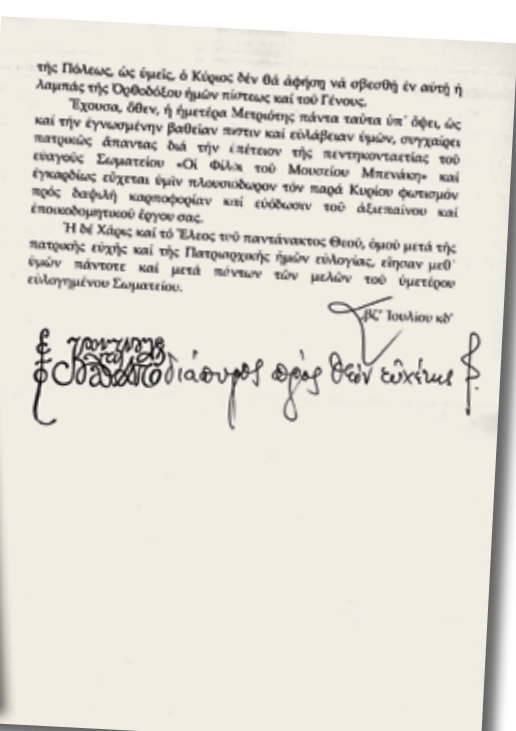 τῆς Πόλεως, ὡς ὑμεῖς, ὁ Κύριος δέν θά ἀφήσῃ νά σβεσθῇ ἐν αὐτῇ ἡ
λαμπάς τῆς Ὀρθοδόξου ἡμῶν πίστεως καί τοῦ Γένους.
Ἔχουσα, ὅθεν, ἡ ἡμετέρα Μετριότης πάντα ταῦτα ὑπ' ὄψει, ὡς
καί τήν ἐγνωσμένην βαθεῖαν πίστιν καί εὐλάβειαν ὑμῶν, συγχαίρει
πατρικῶς ἅπαντας διά τήν ἐπέτειον τῆς πεντηκονταετίας τοῦ
εὐαγοῦς Σωματείου «Οἱ Φίλοι τοῦ Μουσείου Μπενάκη» καί
ἐγκαρδίως εὔχεται ὑμῖν πλουσιόδωρον τόν παρά Κυρίου φωτισμόν
πρός δαψιλῆ καρποφορίαν καί εὐόδωσιν τοῦ ἀξιεπαίνου καί
ἐποικοδομητικοῦ ἔργου σας.
Ἡ δέ Χάρις καί τό Ἔλεος τοῦ παντάνακτος Θεοῦ, ὁμοῦ μετά τῆς
πατρικῆς εὐχῆς καί τῆς Πατριαρχικῆς ἡμῶν εὐλογίας, εἴησαν μεθ'
ὑμῶν πάντοτε καί μετά πάντων τῶν μελῶν τοῦ ὑμετέρου
εὐλογημένου Σωματείου.
͵βζ' Ἰουλίου κδ'
διάπυρος πρός Θεόν εὐχέτης